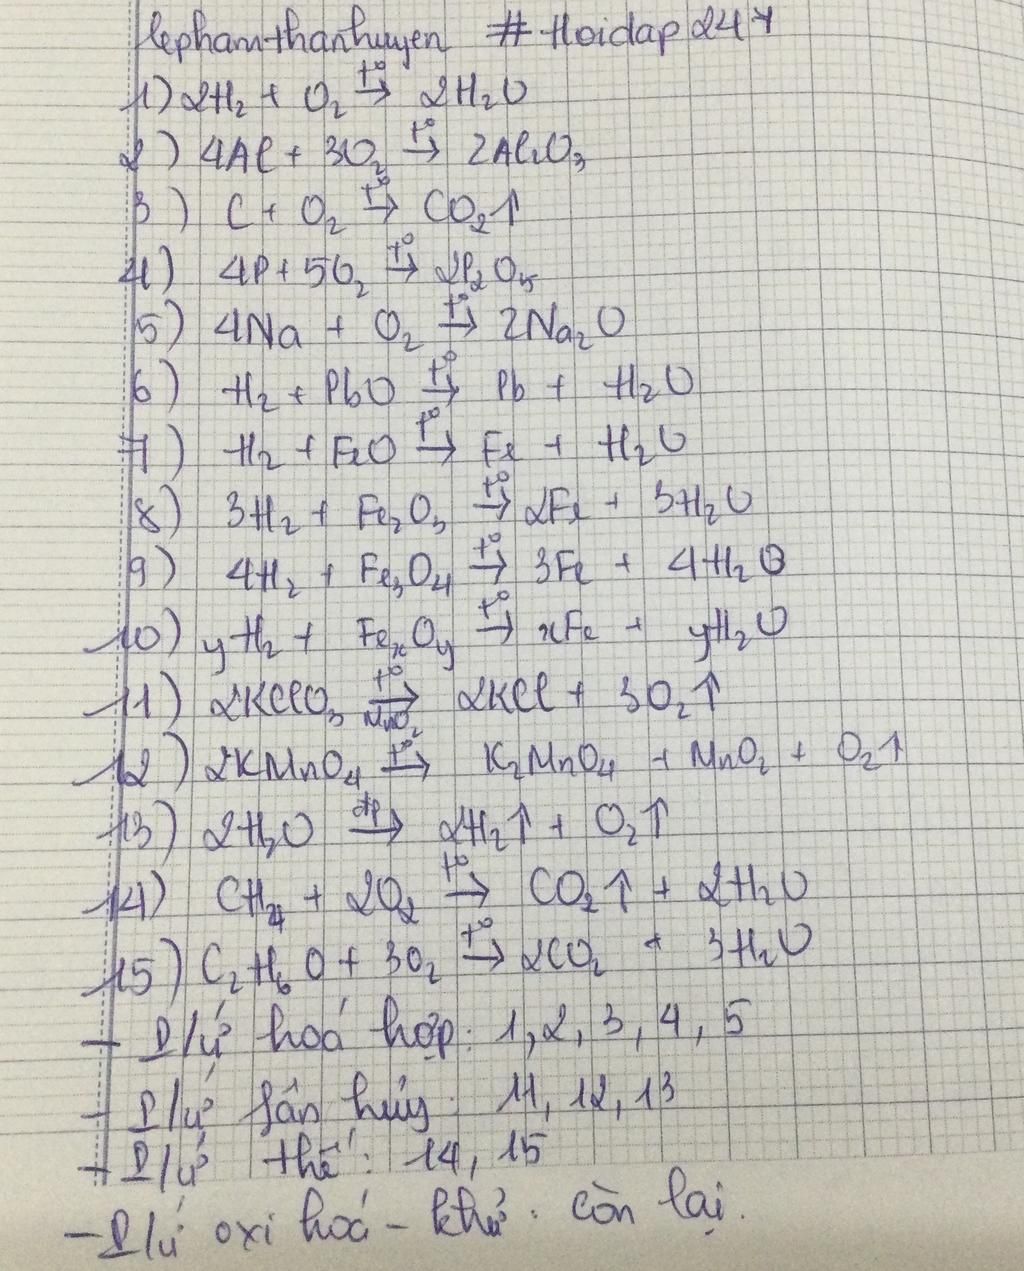 lephamthanhuyen # Hoidap247
1) 2H₂ + O₂ →t° 2H₂O
2) 4Al + 3O₂ →t° 2Al₂O₃
3) C + O₂ →t° CO₂↑
4) 4P + 5O₂ →t° 2P₂O₅
5) 4Na + O₂ →t° 2Na₂O
6) H₂ + PbO →t° Pb + H₂O
7) H₂ + FeO →t° Fe + H₂O
8) 3H₂ + Fe₂O₃ →t° 2Fe + 3H₂O
9) 4H₂ + Fe₃O₄ →t° 3Fe + 4H₂O
10) yH₂ + FeₓOy →t° xFe + yH₂O
11) 2KClO₃ →t° MnO₂ 2KCl + 3O₂↑
12) 2KMnO₄ →t° K₂MnO₄ + MnO₂ + O₂↑
13) 2H₂O →đp 2H₂↑ + O₂↑
14) CH₄ + 2O₂ →t° CO₂↑ + 2H₂O
15) C₂H₆O + 3O₂ →t° 2CO₂ + 3H₂O
- P/ứ hoá hợp: 1, 2, 3, 4, 5
- P/ứ fân hủy: 11, 12, 13
- P/ứ thế: 14, 15
- P/ứ oxi hoá - khử: còn lại.